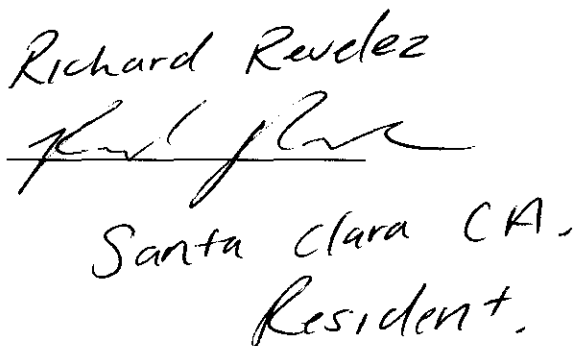 Richard Revelez
Santa Clara CA.
Resident.